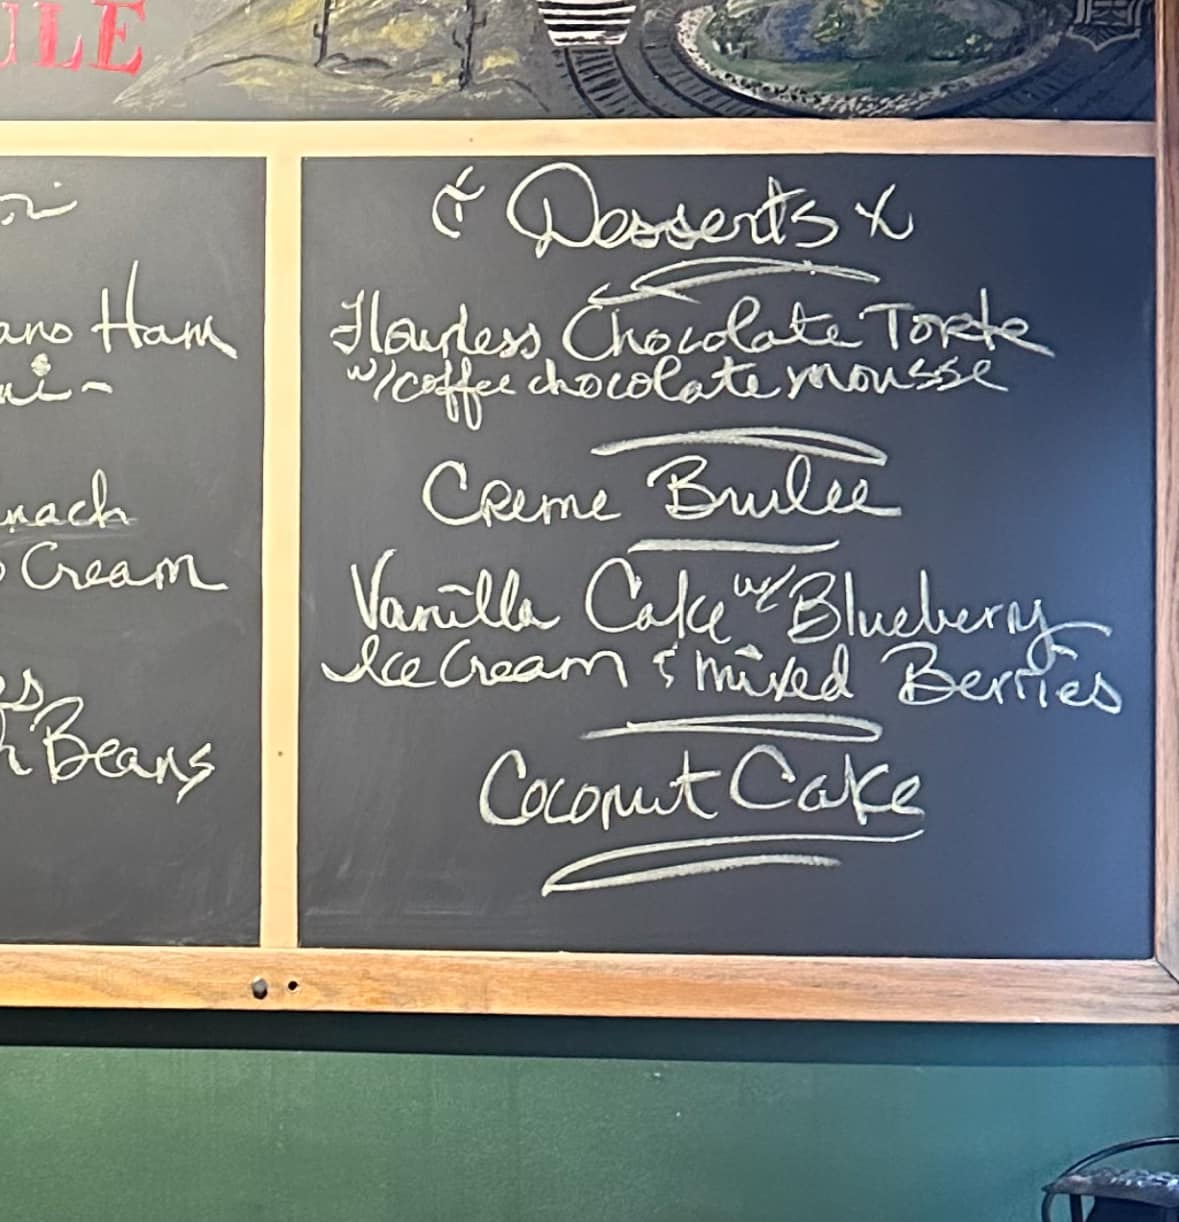 ULE
Ham
nach
Cream
Beans
Desserts
Flourless Chocolate Torte
w/coffee chocolate mousse
Creme Brulee
Vanilla Cake w/ Blueberry
Ice Cream & mixed Berries
Coconut Cake